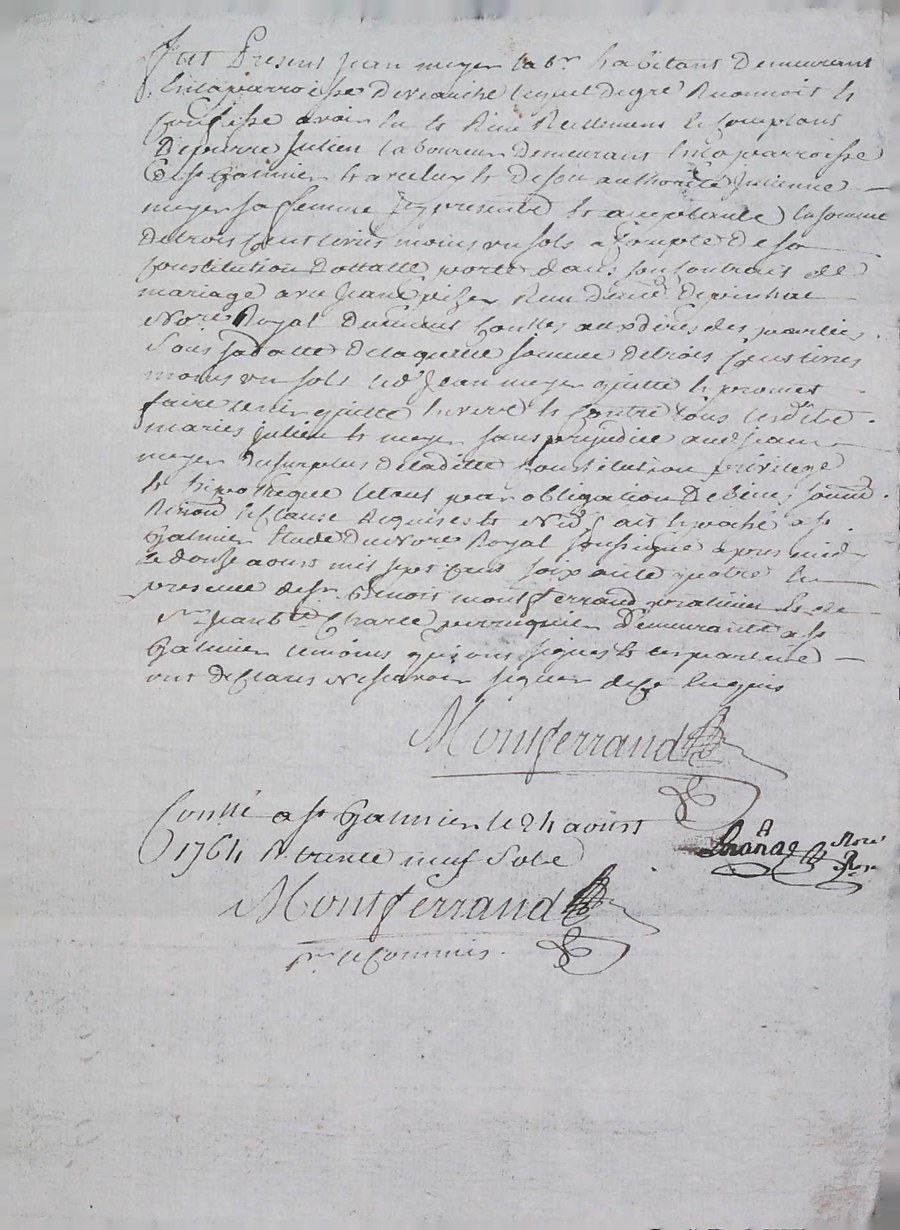 Fut Present Jean meyer lab.r habitant Demeurant
En la parroisse de veauche lequel de gré Reconnoit &
Confesse avoir Eu & Receu Reellement & Comptant
De pierre Julien laboureur Demeurant En la parroisse
de st Galmier & avec luy & de son authorité Julienne
meyer sa femme Icy presente & acceptante la somme
de trois Cent livres moins un sols a Compte de sa
Constitution Dottalle porté dans son Contrait de
mariage avec Jean Reçeu Dud.
No.re Royal Duement Controllé aux dires des parties
Sous sa datte de laquelle somme de trois Cent livres
moins un sols led.t Jean meyer quitte & promet
faire tenir quitte Envers & Contre tous lesd.
mariés Julien & meyer sans prejudice aud Jean
meyer du surplus de laditte Constitution privilege
& hipotheque le tout par obligation De biens soum.
Renon. & Clause Requises & fait & passé a st
Galmier Etude Du no.re Royal soussigné apres midy
Le douse aoust mil sept Cent soixante quatre En
presence de sr. Benoit montferrand praticien & de
sr. Jean b.te Charle perruquier Demeurants a st
Galmier temoins qui ont signés & les parties
ont declarés ne scavoir signer de ce Enquis
Montferrand
Conllé a st Galmier le 24 aoust
1764 R trente neuf Sols
No.re
R.
Montferrand
p.r le Commis.